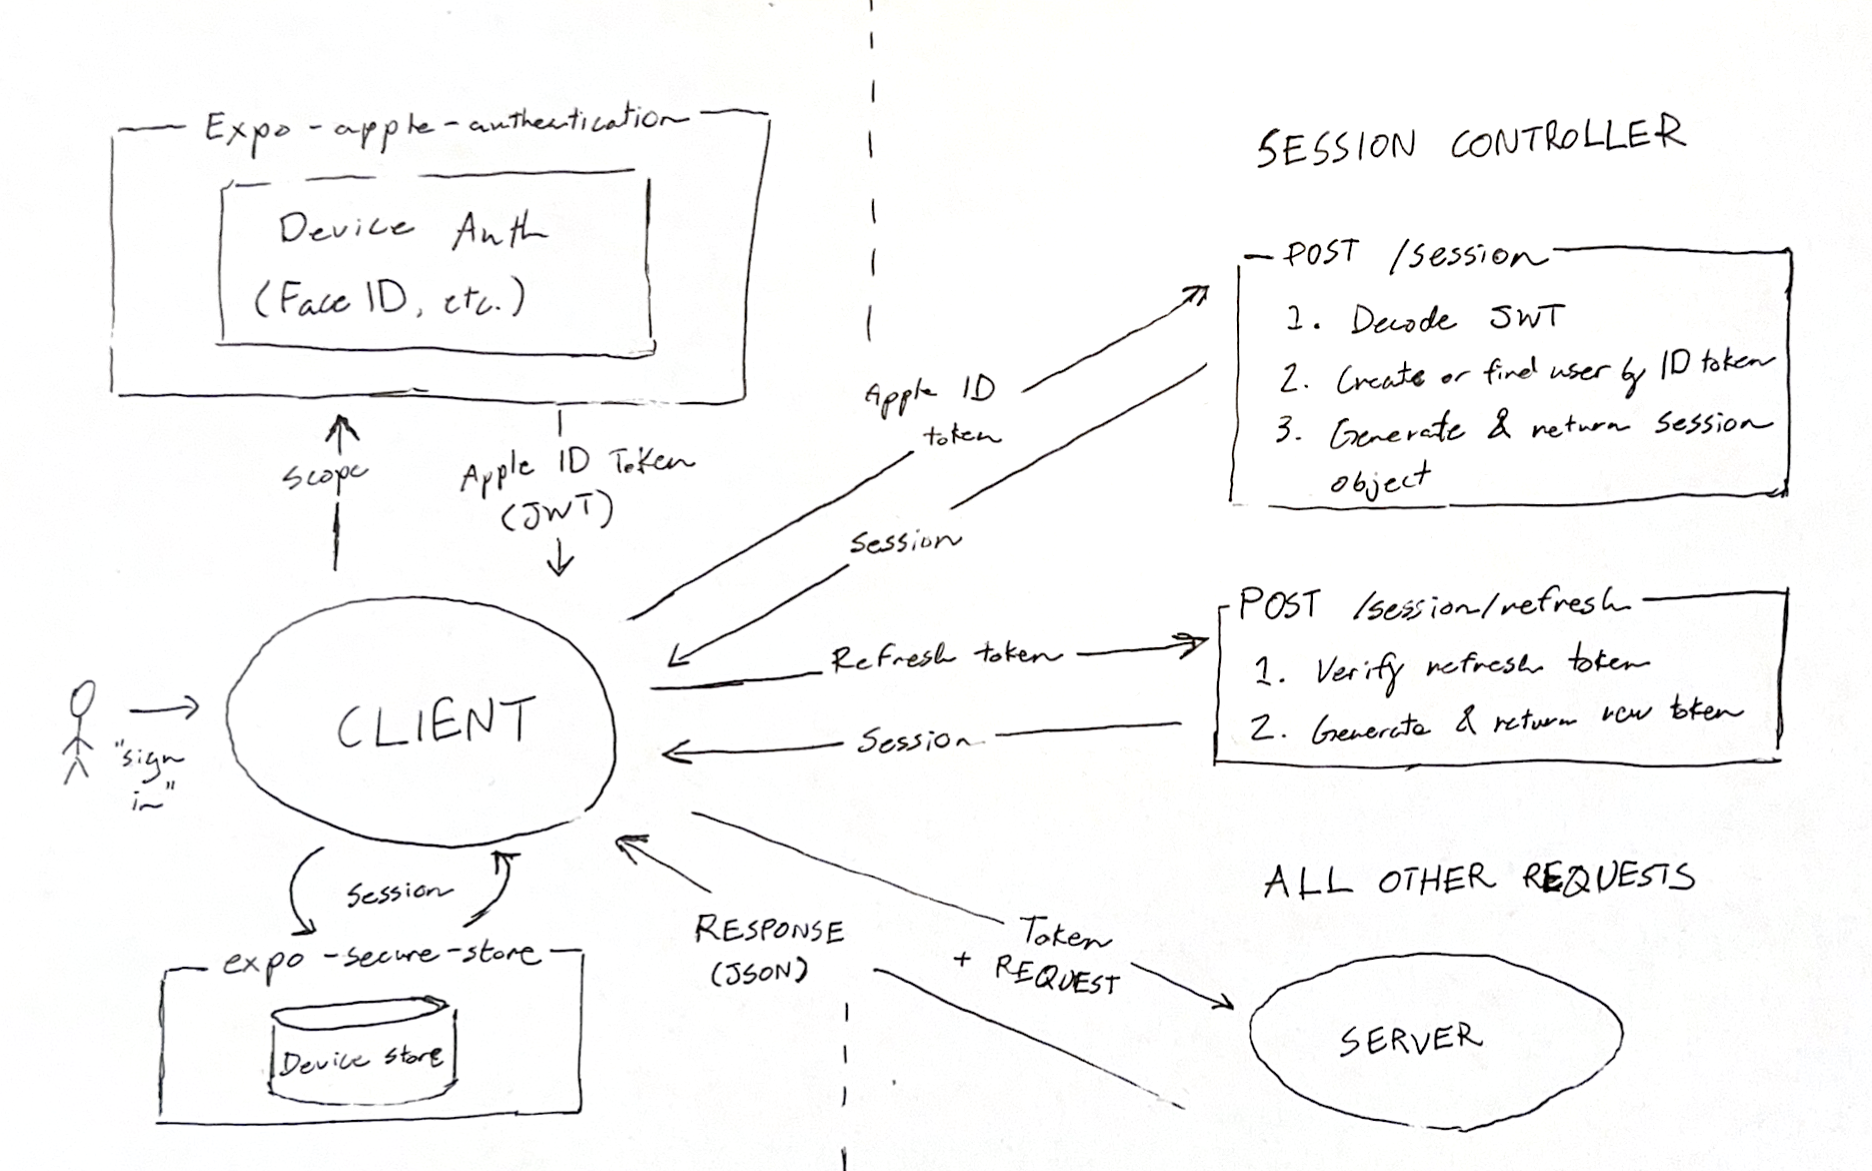 Expo-apple-authentication
Device Auth
(Face ID, etc.)
scope
Apple ID Token
(JWT)
"sign
in"
CLIENT
Session
expo-secure-store
Device store
Apple ID
token
Session
Refresh token
Session
RESPONSE
(JSON)
Token
+ REQUEST
SESSION CONTROLLER
POST /session
1. Decode JWT
2. Create or find user by ID token
3. Generate & return session
object
POST /session/refresh
1. Verify refresh token
2. Generate & return new token
ALL OTHER REQUESTS
SERVER